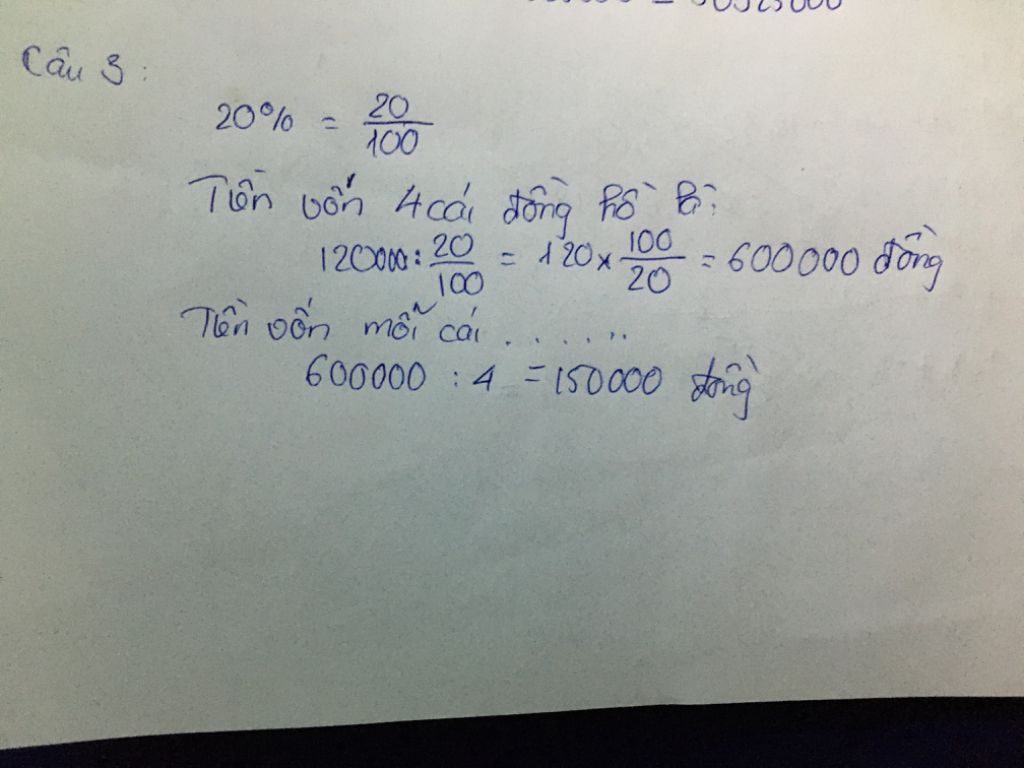 = 50525000
Câu 3 :
20% = 20/100
Tiền vốn 4 cái đồng hồ là:
120000 : 20/100 = 120 x 100/20 = 600000 đồng
Tiền vốn mỗi cái . . . . . .
600000 : 4 = 150000 đồng